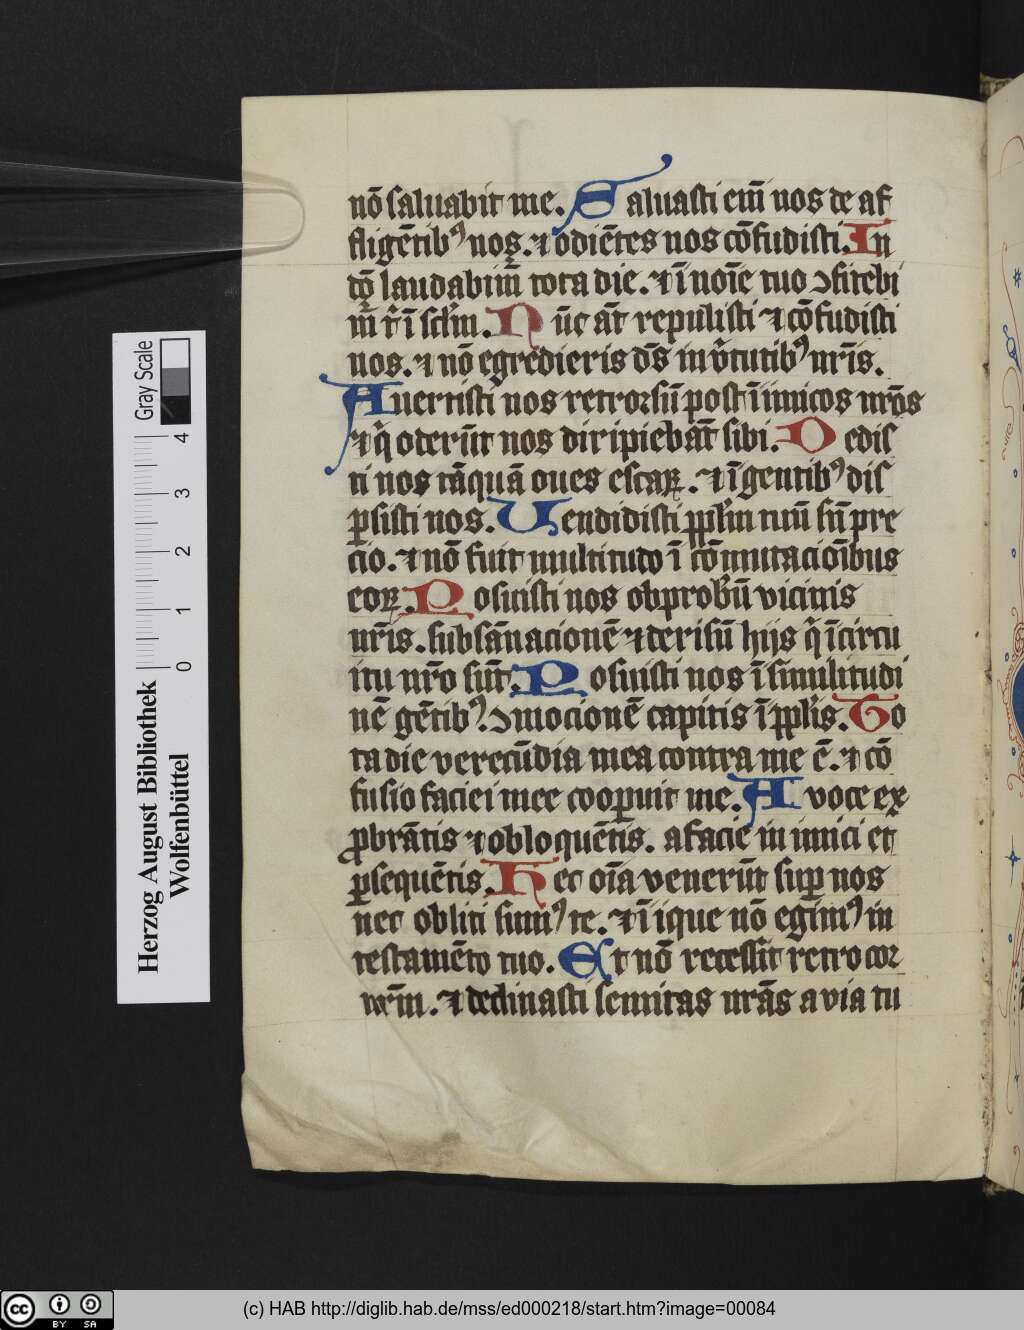 nō saluabit me. Saluasti em̄ nos de af
fligētib⁹ nos. ⁊ odiētes nos cōfudisti. In
laudabim̄ tota die. ⁊ ī noīe tuo ↄfitebi
m̄ ī sclm̄. Nūc āt repulisti ⁊ cōfudisti
nos. ⁊ nō egredieris ds̄ in v̄tutib⁹ nr̄is.
Auertisti nos retrorsū post īimicos nr̄os
⁊ q̄ oderūt nos diripiebāt sibi. Dedis
ti nos tāquā oues escaꝝ. ⁊ ī gentib⁹ dis
ꝑsisti nos. Uendidisti pplm̄ tuū sn̄ pre
cio. ⁊ nō fuit multitudo ī cōmutacioībus
eoꝝ. Posuisti nos obprobriū vicinis
nr̄is. subsānacionē ⁊ derisū hijs q̄ ī circu
itu nr̄o sūt. Posuisti nos ī similitudi
nē gētib⁹. ↄmocionē capitis ī ppl̄is. To
ta die verecūdia mea contra me ē. ⁊ cō
fusio faciei mee cooꝑuit me. A voce ex
ꝓbrātis ⁊ obloquētis. a facie inimici et
ꝑsequētis. Hec oīa venerūt suꝑ nos
nec obliti sum⁹ te. ⁊ īique nō egim⁹ in
testamēto tuo. Et nō recessit retro cor
nr̄m. ⁊ declinasti semitas nr̄as a via tu
Herzog August Bibliothek
Wolfenbüttel
Gray Scale
0 1 2 3 4
(c) HAB http://diglib.hab.de/mss/ed000218/start.htm?image=00084
cc BY SA